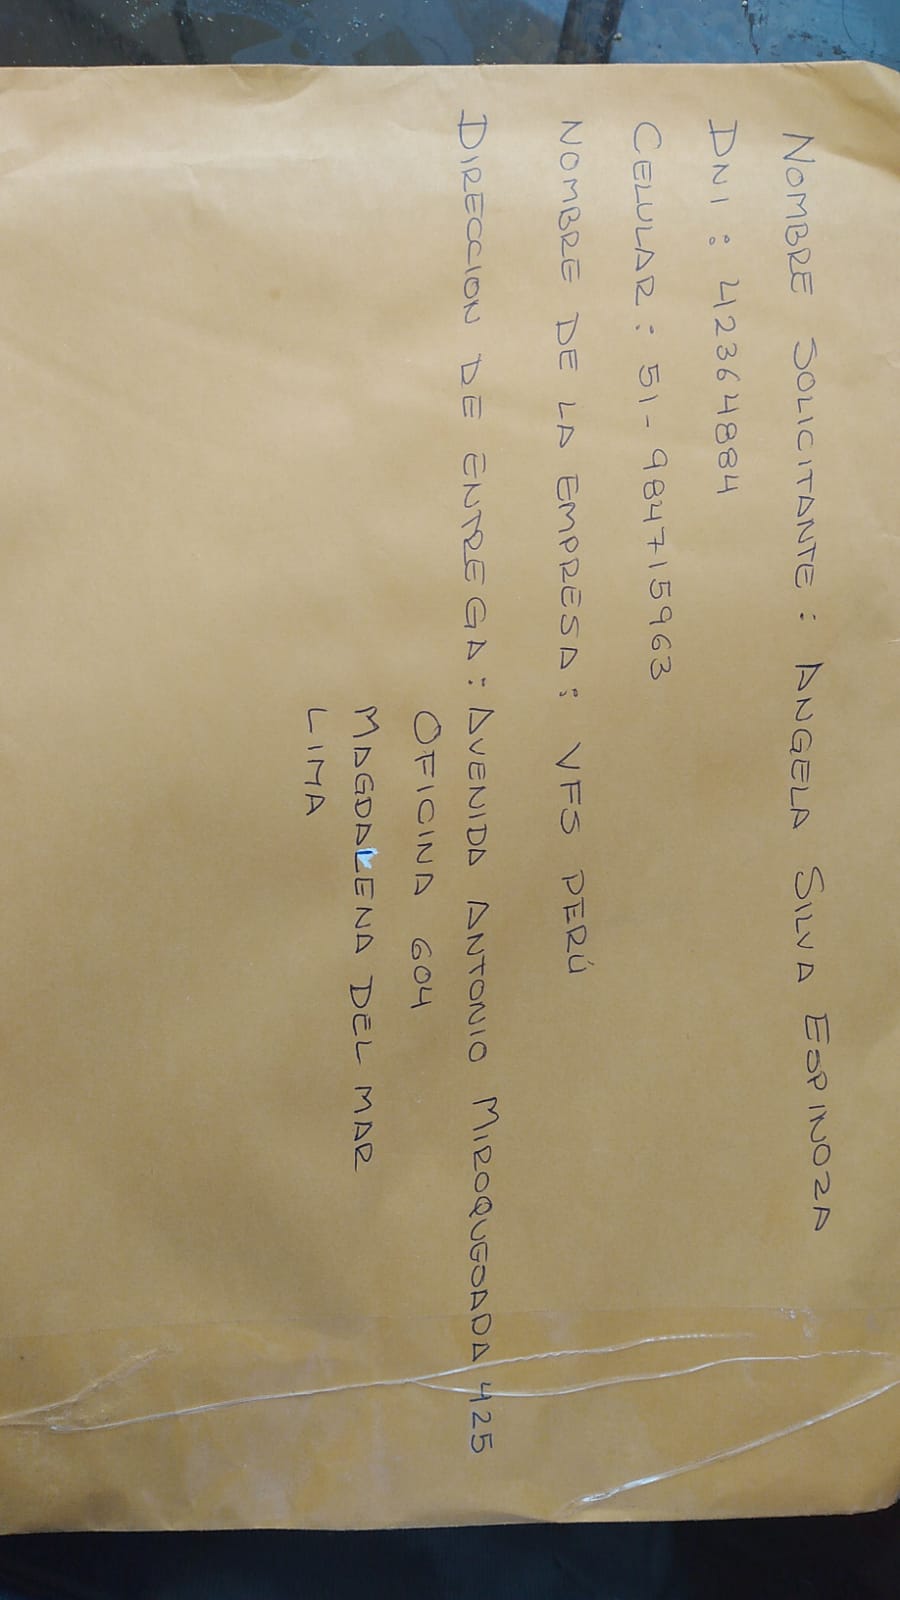 NOMBRE SOLICITANTE: ANGELA SILVA ESPINOZA
DNI: 42364884
CELULAR: 51-984715963
NOMBRE DE LA EMPRESA: VFS PERÚ
DIRECCION DE ENTREGA: AVENIDA ANTONIO MIROQUGOADA 425
OFICINA 604
MAGDALENA DEL MAR
LIMA